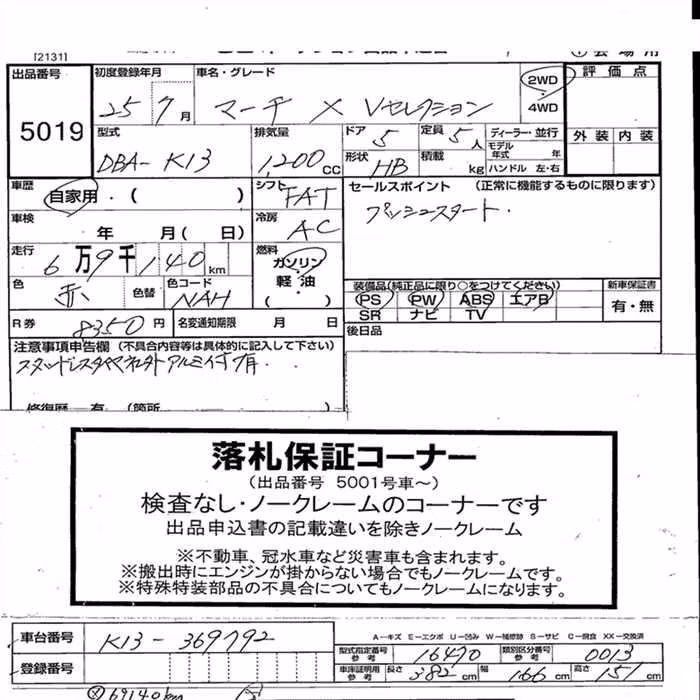 [2131]
出品番号 5019
初度登録年月 25 7月
車名・グレード マーチ X Vセレクション
2WD
4WD
評価点
外装 内装
型式 DBA-K13
排気量 1,200CC
ドア 5
形状 HB
定員 5人
積載 kg
ディーラー・並行
モデル年式 年
ハンドル 左・右
車歴 自家用・( )
シフト FAT
セールスポイント (正常に機能するものに限ります)
プッシュスタート.
車検 年 月( 日)
冷房 AC
走行 6万9千140km
燃料 ガソリン
軽油
( )
色 赤
色替
色コード NAH
装備品(純正品に限り○をつけてください)
PS PW ABS エアB
SR ナビ TV
新車保証書
有・無
R券 8350円
名変通知期限 月 日
後日品
注意事項申告欄 (不具合内容等は具体的に記入して下さい)
修復歴 有 (箇所
落札保証コーナー
(出品番号 5001号車~)
検査なし・ノークレームのコーナーです
出品申込書の記載違いを除きノークレーム
※不動車、冠水車など災害車も含まれます。
※搬出時にエンジンが掛からない場合でもノークレームです。
※特殊特装部品の不具合についてもノークレームになります。
車台番号 K13-369792
A-キズ E-エクボ U-凹み W-補修跡 S-サビ C-腐食 XX-交換済
型式指定番号参考 16470
類別区分番号参考 0013
登録番号
車庫証明用参考 長さ 382cm 幅 166cm 高さ 151cm
69140km